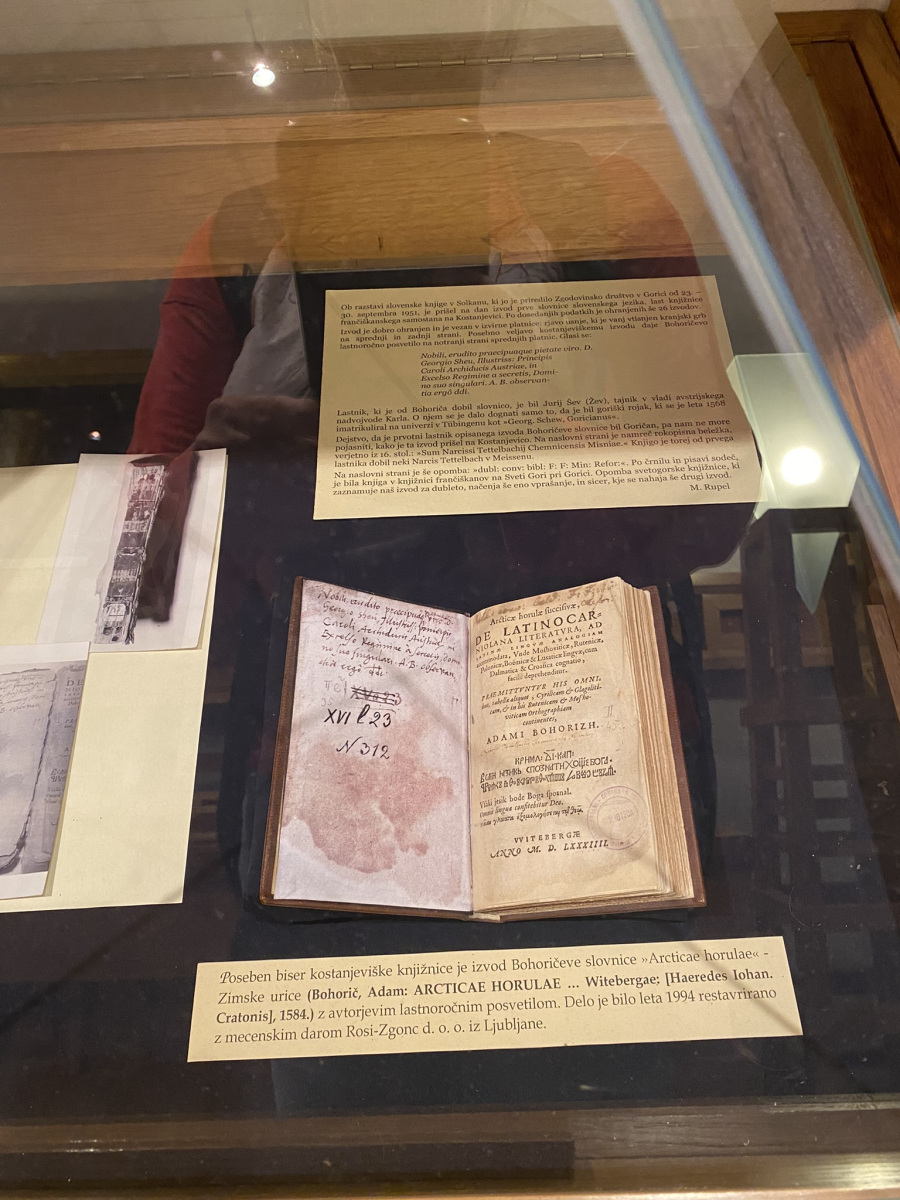 Ob razstavi slovenske knjige v Solkanu, ki jo je priredilo Zgodovinsko društvo v Gorici od 23. –
30. septembra 1951, je prišel na dan izvod prve slovnice slovenskega jezika, last knjižnice
frančiškanskega samostana na Kostanjevici. Po dosedanjih podatkih je ohranjenih še 26 izvodov.
Izvod je dobro ohranjen in je vezan v izvirne platnice: rjavo usnje, ki je vanj vtisnjen kranjski grb
na sprednji in zadnji strani. Posebno veljavo kostanjeviškemu izvodu daje Bohoričevo
lastnoročno posvetilo na notranji strani sprednjih platnic. Glasi se:
Nobili, erudito praecipuaque pietate viro. D.
Georgio Sheu, Illustriss: Principis
Caroli Archiducis Austriae, in
Excelso Regimine a secretis, Domi-
no suo singulari. A. B. observan-
tia ergō ddi.
Lastnik, ki je od Bohoriča dobil slovnico, je bil Jurij Šev (Žev), tajnik v vladi avstrijskega
nadvojvode Karla. O njem se je dalo dognati samo to, da je bil goriški rojak, ki se je leta 1568
imatrikuliral na univerzi v Tübingenu kot »Georg. Schew, Goricianus«.
Dejstvo, da je prvotni lastnik opisanega izvoda Bohoričeve slovnice bil Goričan, pa nam ne more
pojasniti, kako je ta izvod prišel na Kostanjevico. Na naslovni strani je namreč rokopisna beležka,
verjetno iz 16. stol.: »Sum Narcissi Tettelbachij Chemnicensis Misniae.« Knjigo je torej od prvega
lastnika dobil neki Narcis Tettelbach v Meissenu.
Na naslovni strani je še opomba: »dubl: conv: bibl: F: F: Min: Refor:«. Po črnilu in pisavi sodeč,
je bila knjiga v knjižnici frančiškanov na Sveti Gori pri Gorici. Opomba svetogorske knjižnice, ki
zaznamuje naš izvod za dubleto, načenja še eno vprašanje, in sicer, kje se nahaja še drugi izvod.
M. Rupel
Nobili, erudito praecipuáque
Georgio Sheu, Illustriss: Principis
Caroli, Archiducis Austriae, in
Excelso Regimine à secretis, Domi
no suo singulari. A. B. observan,
tia ergô ddi.
XVI l 23
N 312
Arcticæ horulæ succisivæ,
DE LATINOCAR-
NIOLANA LITERATVRA, AD
LATINÆ LINGVÆ ANALOGIAM
accommodata, Vnde Moshoviticæ, Rutenicæ,
Polonicæ, Boëmicæ & Lusaticæ lingvæ, cum
Dalmatica & Croatica cognatio,
facilè deprehenditur.
PRÆMITTVNTVR HIS OMNI-
bus, tabellæ aliquot, Cyrillicam & Glagoliti-
cam, & in his Rutenicam & Mosho-
viticam Orthographiam
continentes,
ADAMI BOHORIZH.
Vßaki jesik bode Boga sposnal.
Omnis lingua confitebitur Deo.
VVITEBERGÆ
ANNO M. D. LXXXIIII.
Poseben biser kostanjeviške knjižnice je izvod Bohoričeve slovnice »Arcticae horulae« -
Zimske urice (Bohorič, Adam: ARCTICAE HORULAE ... Witebergae: [Haeredes Iohan.
Cratonis], 1584.) z avtorjevim lastnoročnim posvetilom. Delo je bilo leta 1994 restavrirano
z mecenskim darom Rosi-Zgonc d. o. o. iz Ljubljane.